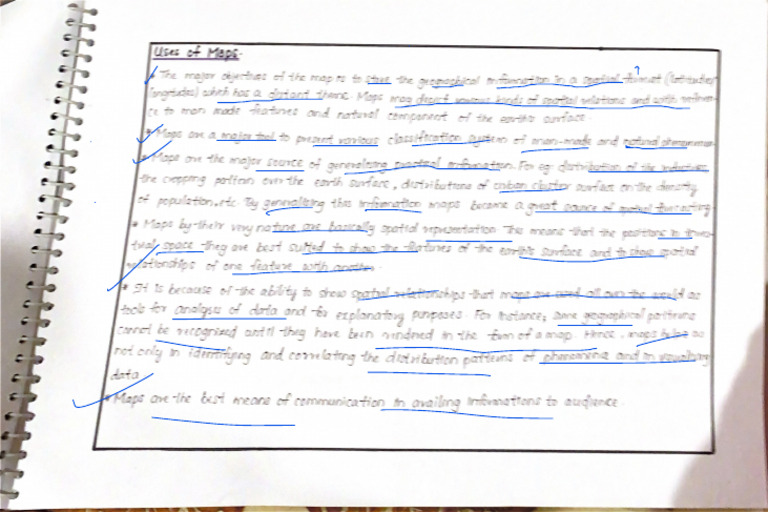 Uses of Maps.
• The major objectives of the map is to store the geographical information in a spatial format (latitudes/
longitudes) which has a distant theme. Maps may depict various kinds of spatial relations and with referen-
ce to man made features and natural component of the earth's surface.
• Maps are a major tool to present various classification system of man-made and natural phenomenon
• Maps are the major source of generalising practical information. For eg: distribution of the industries,
the cropping pattern over the earth surface, distributions of urban cluster surface on the density
of population, etc. By generalising this information maps become a great source of spatial forecasting
• Maps by their very nature are basically spatial representation This means that the positions in
space they are best suited to show the features of the earth's surface and to show spatial
relationships of one feature with another.
• It is because of the ability to show spatial relationships that maps are used all over the world as
tools for analysis of data and for explanatory purposes. For instance, some geographical patterns
cannot be recognized until they have been rendered in the form of a map. Hence, maps helps us
not only in identifying and correlating the distribution patterns of phenomena and in visualising
data.
• Maps are the best means of communication in availing informations to audience.